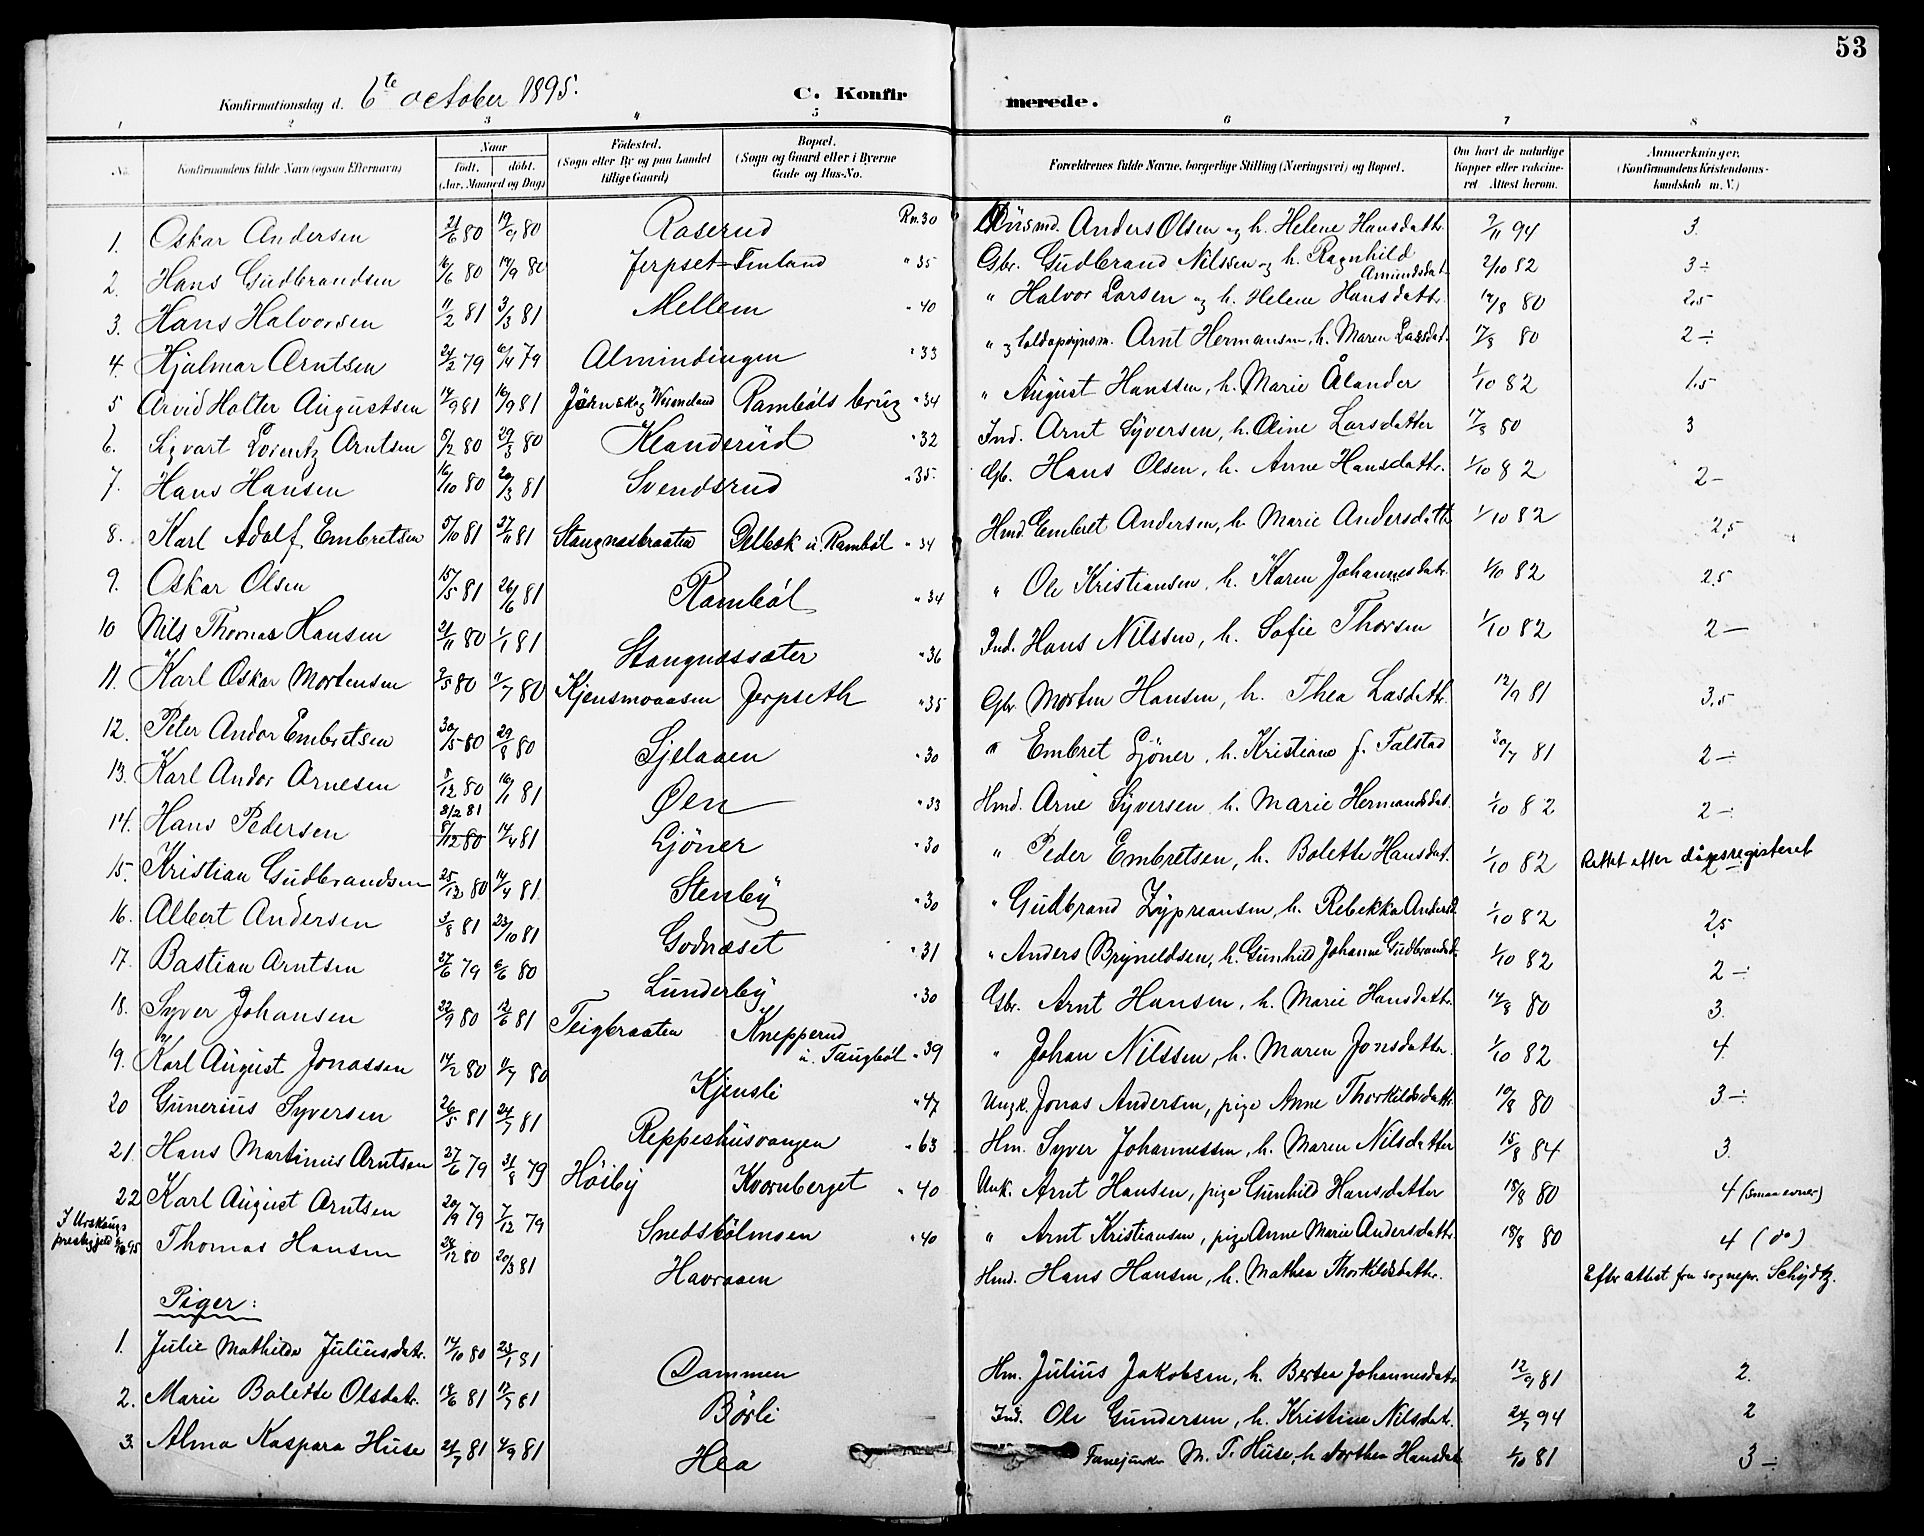 53
Konfirmationsdag d. 6te october 1895. C. Konfirmerede.
1 2 3 4 5 6 7 8
No. Konfirmandens fulde Navn (ogsaa Efternavn) Naar født. døbt. (Aar, Maaned og Dag) Fødested. (Sogn eller By og paa Landet tillige Gaard) Bopæl. (Sogn og Gaard eller i Byerne Gade og Hus-No. Forældrenes fulde Navne, borgerlige Stilling (Næringsvei) og Bopæl. Om havt de naturlige Kopper eller vakcineret Attest herom. Anmærkninger. (Konfirmandens Kristendomskundskab m. V.)
1. Oskar Andersen 21/6 80 19/9 80 Roserud Rn. 30 Husmd. Anders Olsen og h. Helene Hansdatr. 2/11 94 3.
2. Hans Gudbrandsen 16/6 80 19/9 80 Jerpset-Finland " 35 Gbr. Gudbrand Nilssen og h. Ragnhild Amundsdat. 2/10 82 3 ÷
3. Hans Halvorsen 11/2 81 3/3 81 Mellem " 40 " Halvor Larsen og h. Helene Hansdattr. 17/8 80 2,5
4. Hjalmar Arntsen 21/2 79 6/4 79 Almindingen " 33 " og Arnt Hermansen, h. Maren Larsdat. 17/8 80 2 ÷
5 Arvid Holter Augustsen 14/9 81 16/9 81 Järnskog Wermeland Rambøls brug " 34 " August Hanssen, h. Marie Ålander 1/10 82 1,5
6. Sigvart Lorentz Arntsen 5/2 80 29/3 80 Klanderud " 32 Ind. Arnt Syversen, h. Oline Larsdatter 17/8 80 3
7. Hans Hansen 16/10 80 20/3 81 Svendsrud " 35. Gb. Hans Olsen, h. Anne Hansdattr. 1/10 82 2 -
8. Karl Adolf Embretsen 5/10 81 27/11 81 Stangnesbraaten Ølbæk u. Rambøl " 34 Hmd. Embret Andersen, h. Marie Andersdattr 1/10 82 2,5
9. Oskar Olsen 15/5 81 26/6 81 Rambøl " 34 " Ole Kristiansen, h. Karen Johannesdatr. 1/10 82 2,5
10 Nils Thomas Hansen 21/11 80 1/1 81 Stangnessæter " 36 Ind. Hans Nilssen, h. Sofie Thorsen 1/10 82 2 -
11. Karl Oskar Mortensen 9/5 80 11/7 80 Kjensmoaasen Jerpseth " 35 Gbr. Morten Hansen, h. Thea Lasdattr. 12/9 81 3,5
12. Peter Andor Embretsen 30/5 80 29/8 80 Sjelaaen " 30 " Embret Gjöner, h. Kristiane f. Falstad 30/7 81 2 -
13. Karl Andor Arnesen 5/12 80 16/1 81 Øen " 33 Hmd. Arne Syversen h. Marie Hermandsdat. 1/10 82 2 ÷
14. Hans Pedersen 8/2 81 8/12 80 14/4 81 Gjöner " 30 " Peder Embretsen, h. Bolette Hansdat. 1/10 82 Rettet efter dåpsregisteret 2
15. Kristian Gudbrandsen 25/12 80 14/4 81 Stenby " 30 " Gudbrand Zyprianssen, h. Rebekka Andersd. 1/10 82 2,5
16. Albert Andersen 3/8 81 23/10 81 Godnæset " 31 " Anders Bryneldsen, h. Gunhild Johanne Gudbrandsd. 1/10 82 2 ÷
17. Bastian Arntsen 27/6 79 6/6 80 Lunderby " 30 Gbr. Arnt Hansen, h. Marie Hansdattr. 17/8 80 3.
18. Syver Johansen 22/9 80 12/6 81 Teigbraaten Knepperud u. Taugbøl " 39 " Johan Nilssen, h. Maren Jonsdatter 1/10 82 4.
19. Karl August Jonassen 14/2 80 11/7 80 Kjensli " 47 Ungk. Jonas Andersen, pige Anne Thorkildsdattr. 10/8 80 3 ÷
20 Gunerius Syversen 26/5 81 24/7 81 Reppeshusvangen " 63 Hm. Syver Johannessen, h. Maren Nilsdatter 15/8 84 3.
21. Hans Martinius Arntsen 27/6 79 31/8 79 Høiby Kvernberget " 40 Unk. Arnt Hansen, pige Gunhild Hansdatter 18/8 80 4 (smaa evner)
22 Karl August Arntsen 20/9 79 7/12 79 Snedsbølmoen " 40 " Arnt Kristiansen, pige Anne Marie Andersdattr. 18/8 80 4 (do)
I Urskougs prestegjeld 95 Thomas Hansen 24/12 80 20/3 81 Havraaen Hmd. Hans Hansen, h. Mathea Thorkildsdattr. Efter attest fra sognepr. Schydtz.
Piger:
1. Julie Mathilde Juliusdatr. 14/10 80 23/1 81 Dammen Hm. Julius Jakobsen, h. Bertea Johannesdatr 12/9 81 2.
2. Marie Bolette Olsdatr. 18/6 81 17/7 81 Börli Ind. Ole Gundersen, h. Kristine Nilsdat. 24/7 94 2
3. Alma Kaspara Huse 21/7 81 4/9 81 Hea Fanejunker M. T. Huse, h Dorthea Hansdat. 1/10 81 3 ÷